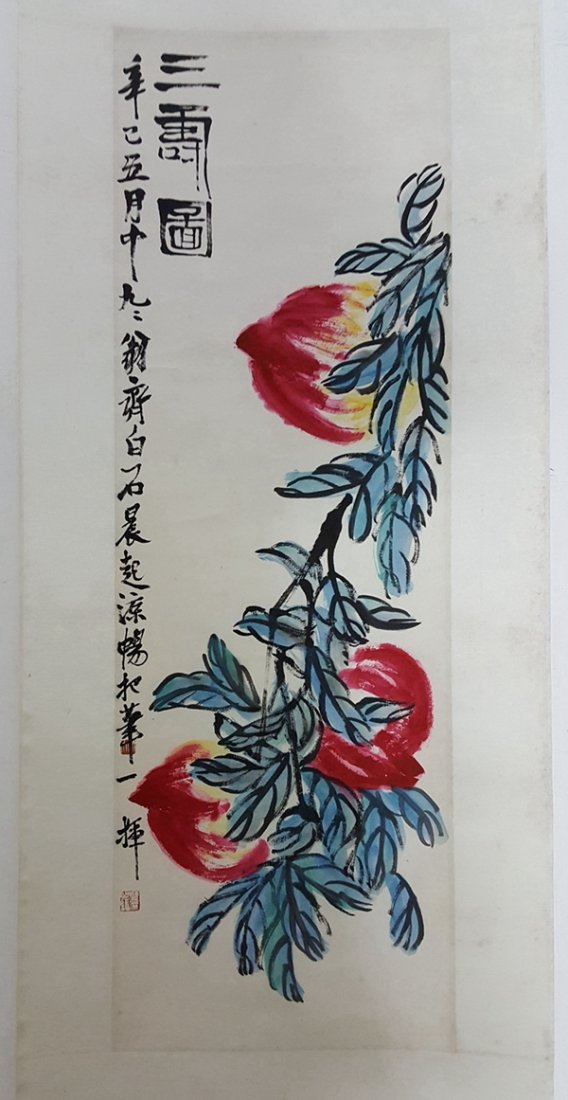 三壽圖
辛巳五月中九二翁齊白石晨起涼暢把筆一揮